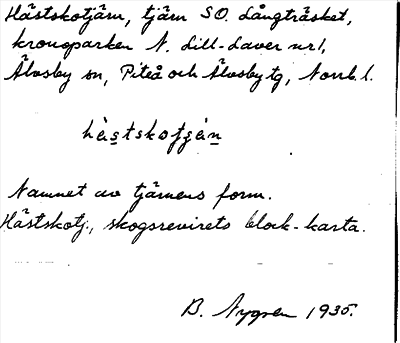 Hästskotjärn, tjärn SO. Långträsket,
kronoparken N. Lill-Laver nr 1,
Älvsby sn, Piteå och Älvsby tg, Norrb. l.
hästskotjän
Namnet av tjärnens form.
Hästskotj., skogsrevirets block-karta.
B. Nygren 1935.